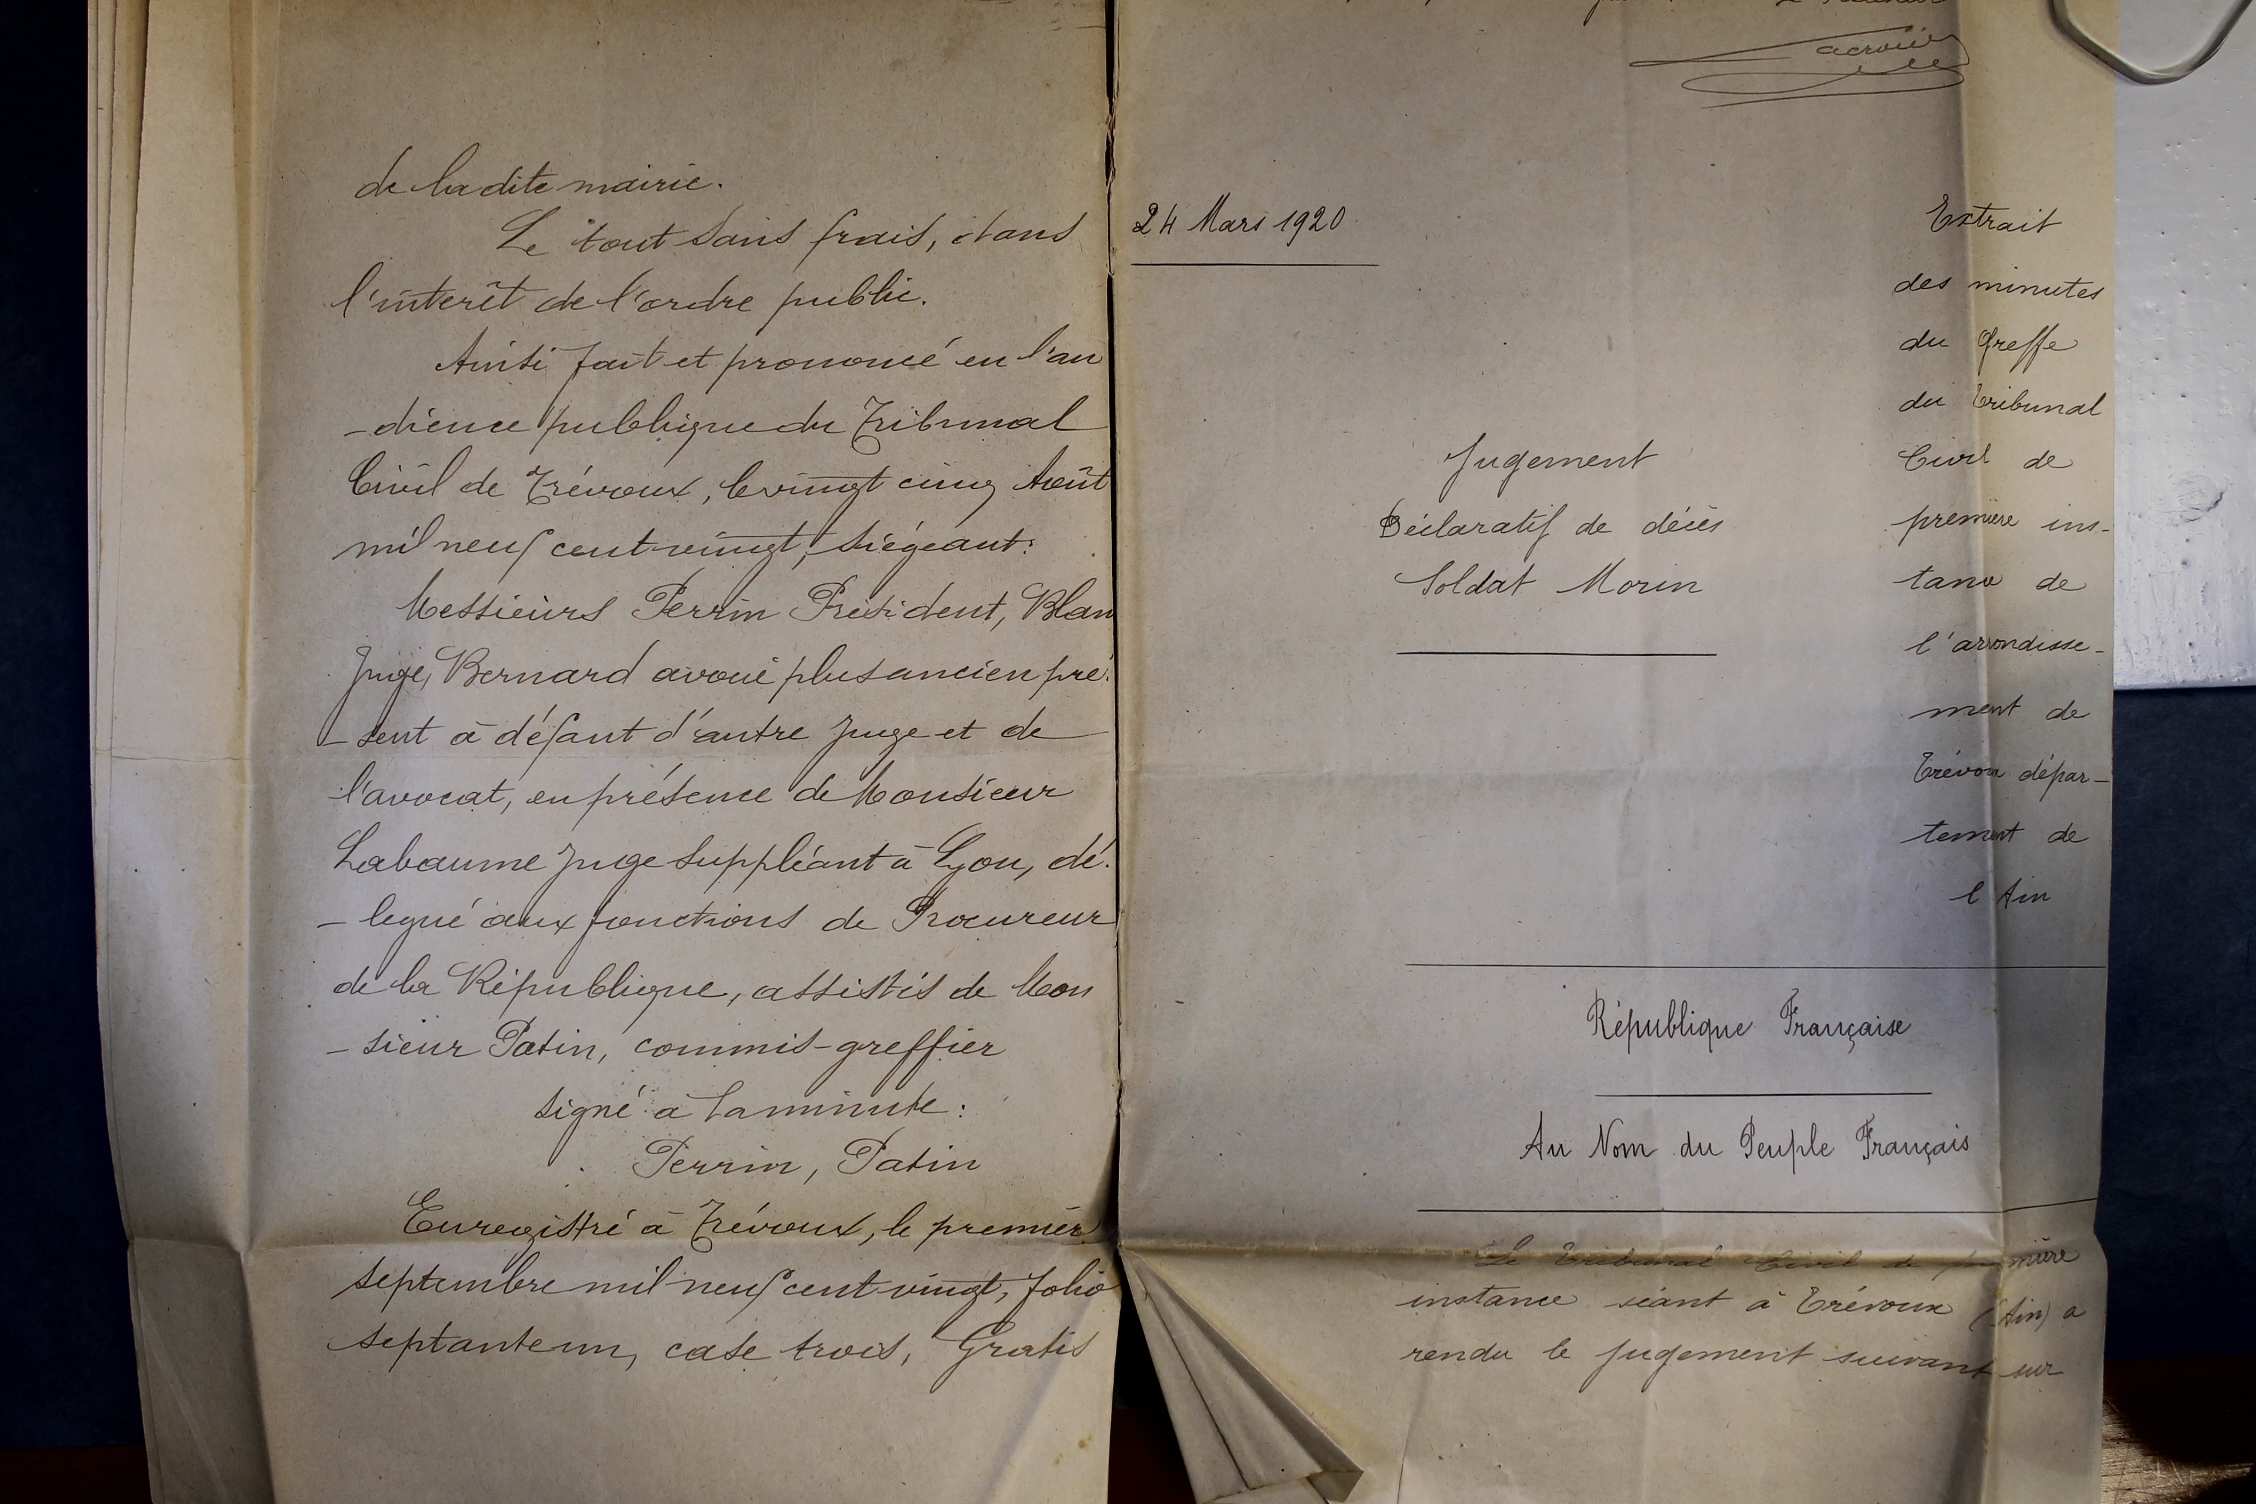 de la dite mairie.
Le tout sans frais, dans
l'intérêt de l'ordre public.
Ainsi fait et prononcé en l'au
-dience publique du Tribunal
Civil de Trévoux, le vingt cinq Août
mil neuf cent vingt, siégeant:
Messieurs Perrin Président, Blan
Juge, Bernard avoué plus ancien pré-
-sent à défaut d'autre Juge et de
l'avocat, en présence de Monsieur
Labaume Juge suppléant à Lyon, dé-
-légué aux fonctions de Procureur
de la République, assistés de Mon
-sieur Patin, commis-greffier
signé à la minute:
Perrin, Patin
Enregistré à Trévoux, le premier
septembre mil neuf cent vingt, folio
septante un, case trois, Gratis
24 Mars 1920
Jugement
Déclaratif de décès
Soldat Morin
Extrait
des minutes
du Greffe
du Tribunal
Civil de
première ins-
tance de
l'arrondisse-
ment de
Trévoux dépar-
tement de
l'Ain
République Française
Au Nom du Peuple Français
Le Tribunal Civil de première
instance séant à Trévoux (Ain) a
rendu le jugement suivant sur